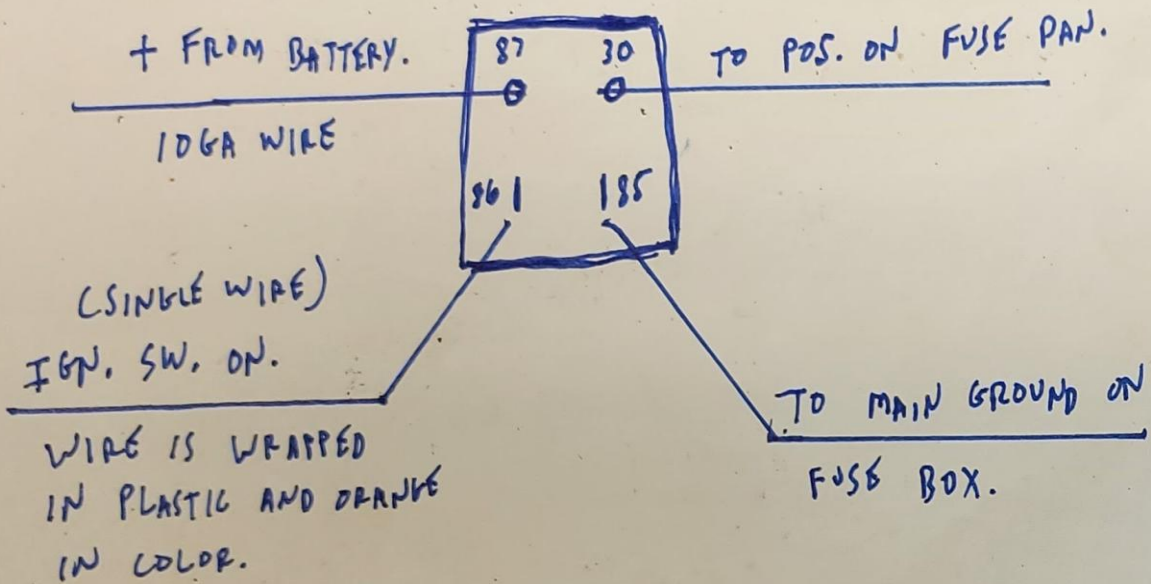 + FROM BATTERY.
10GA WIRE
87 30
TO POS. ON FUSE PAN.
86 85
(SINGLE WIRE)
IGN. SW. ON.
WIRE IS WRAPPED
IN PLASTIC AND ORANGE
IN COLOR.
TO MAIN GROUND ON
FUSE BOX.